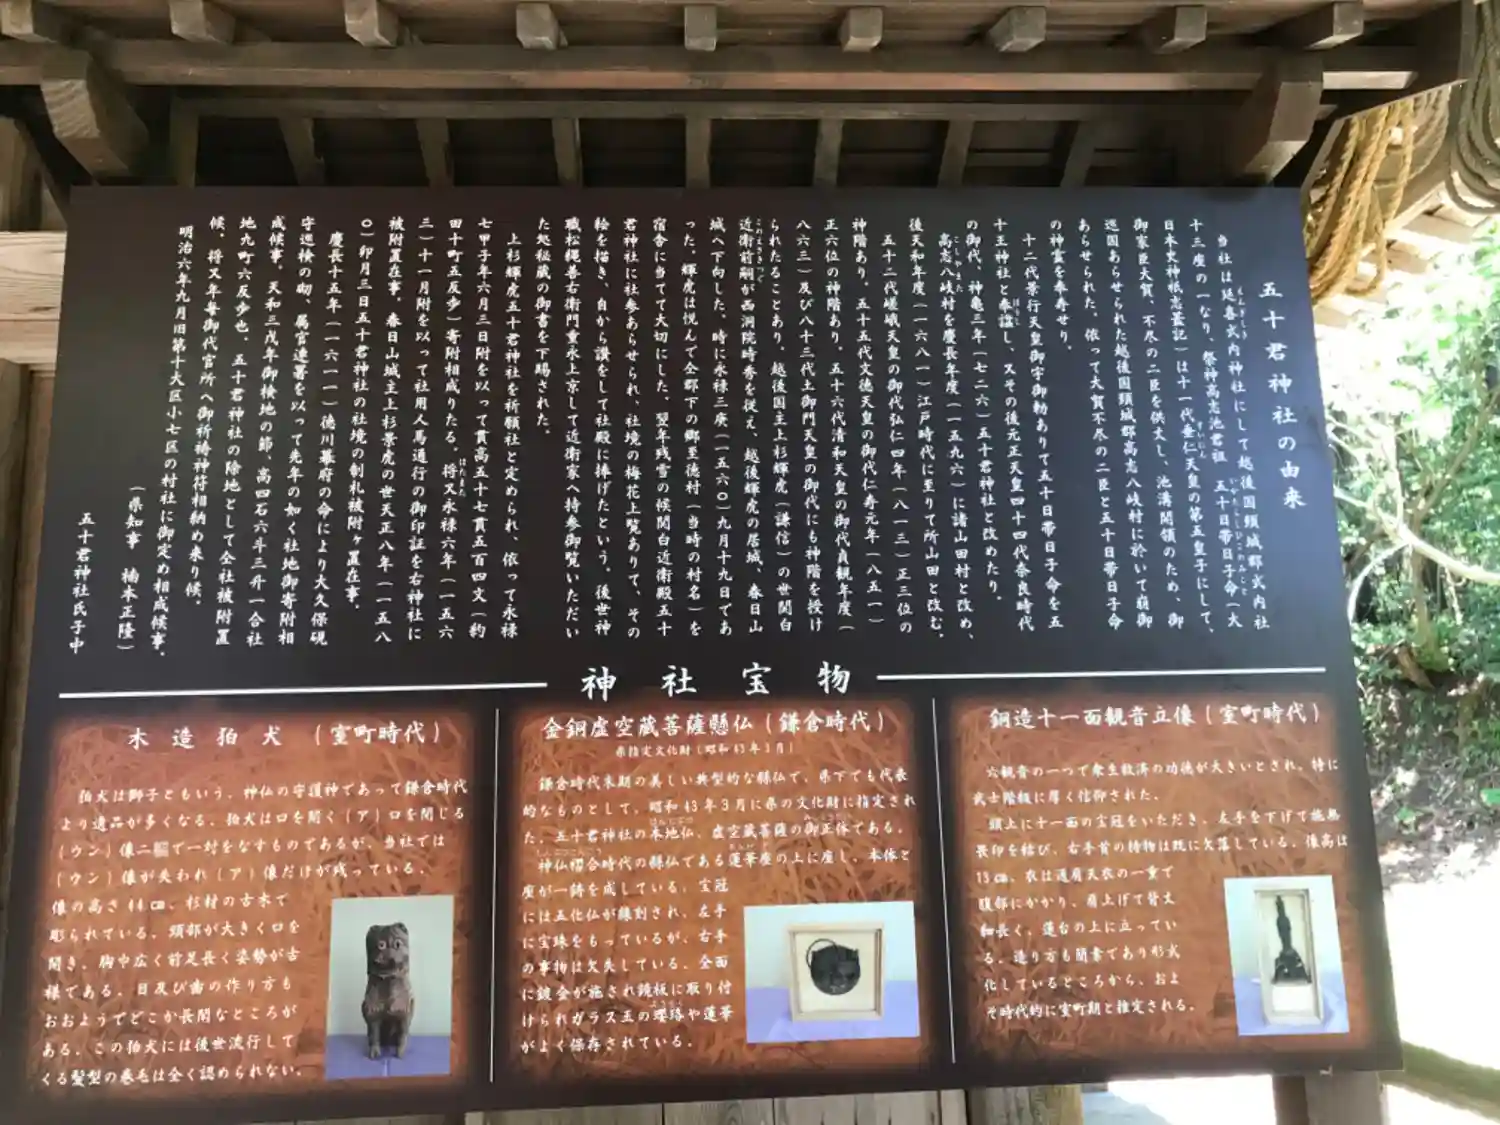 五十君神社の由来
当社は延喜式内神社にして越後国頸城郡式内社
えんぎしき
十三座の一なり、祭神高志池君祖 五十日帯日子命(大
いかたらしひこのみこと
日本史神祇志蓋記)は十一代垂仁天皇の第五皇子にして、
すいにん
御家臣大賀、不尽の二臣を供丈し、池溝開領のため、御
巡国あらせられた越後国頸城郡高志八岐村に於いて崩御
あらせられた。依って大賀不尽の二臣と五十日帯日子命
の神霊を奉寿せり。
十二代景行天皇御宇御勅ありて五十日帯日子命を五
十王神社と奉謚し、又その後元正天皇四十四代奈良時代
ほうし
の御代、神亀三年(七二六)五十君神社と改めたり。
高志八岐村を慶長年度(一五九六)に諸山田村と改め、
こしやまた
後天和年度(一六八一)江戸時代に至りて所山田と改む。
五十二代嵯峨天皇の御代弘仁四年(八一三)正三位の
神階あり。五十五代文徳天皇の御代仁寿元年(八五一)
正六位の神階あり。五十六代清和天皇の御代貞観年度(
八六三)及び八十三代土御門天皇の御代にも神階を授け
られたることあり。越後国主上杉輝虎(謙信)の世関白
近衛前嗣が西洞院時秀を従え、越後輝虎の居城、春日山
このえさきつぐ
城へ下向した。時に永禄三庚(一五六〇)九月十九日であ
った。輝虎は悦んで全郡下の郷至徳村(当時の村名)を
宿舎に当てて大切にした。翌年残雪の候関白近衛殿五十
君神社に社参あらせられ、社境の梅花上覧ありて、その
絵を描き、自から讃をして社殿に捧げたという。後世神
職松縄善右衛門重永上京して近衛家へ持参御覧いただい
た処秘蔵の御書を下賜された。
上杉輝虎五十君神社を祈願社と定められ、依って永禄
七甲子年六月三日附を以って貫高五十七貫五百四文(約
田十町五反歩)寄附相成りたる。将又永禄六年(一五六
はたまた
三)十一月附を以って社用人馬通行の御印証を右神社に
被附置在事。春日山城主上杉景虎の世天正八年(一五八
〇)卯月三日五十君神社の社境の制札被附ヶ置在事。
慶長十五年(一六一一)徳川幕府の命により大久保硯
守巡検の砌、属官連署を以って先年の如く社地御寄附相
成候事。天和三戌年御検地の節、高四石六斗三升一合社
地九町六反歩也、五十君神社の除地として全社被附置
候、将又年毎御代官所へ御祈祷神符相納め来り候。
明治六年九月旧第十大区小七区の村社に御定め相成候事。
(県知事 楠本正隆)
五十君神社氏子中
神社宝物
木造狛犬 (室町時代)
狛犬は獅子ともいう。神仏の守護神であって鎌倉時代
より遺品が多くなる。狛犬は口を開く(ア)口を閉じる
(ウン)像二 で一対をなすものであるが、当社では
(ウン)像が失われ(ア)像だけが残っている。
像の高さ44㎝、杉材の古木で
彫られている。頭部が大きく口を
開き、胸巾広く前足長く姿勢が古
様である。目及び歯の作り方も
おおようでどこか長閑なところが
ある。この狛犬には後世流行して
くる髪型の巻毛は全く認められない。
金銅虚空蔵菩薩懸仏(鎌倉時代)
県指定文化財(昭和43年3月)
鎌倉時代末期の美しい典型的な懸仏で、県下でも代表
的なものとして、昭和43年3月に県の文化財に指定され
た。五十君神社の本地仏、虚空蔵菩薩の御正体である。
ほんじぶつ
神仏褶合時代の懸仏である蓮華座の上に座し、本体と
座が一鋳を成している。宝冠
には五化仏が線刻され、左手
に宝珠をもっているが、右手
の事物は欠失している。全面
に鍍金が施され鏡板に取り付
けられガラス玉の瓔珞や蓮華
がよく保存されている。
銅造十一面観音立像(室町時代)
六観音の一つで衆生救済の功徳が大きいとされ、特に
武士階級に厚く信仰された。
頭上に十一面の宝冠をいただき、左手を下げて施無
畏印を結び、右手首の持物は既に欠落している。像高は
13㎝、衣は通肩天衣の一重で
腹部にかかり、肩上げて背丈
細長く、蓮台の上に立ってい
る。造り方も簡素であり形式
化しているところから、およ
そ時代的に室町期と推定される。